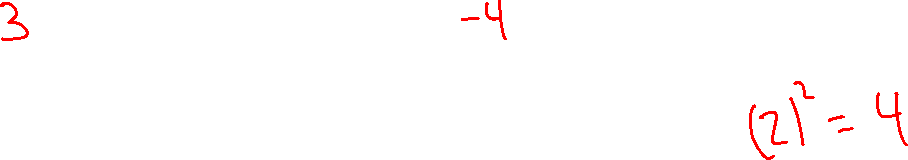 3 -4
(2)² = 4